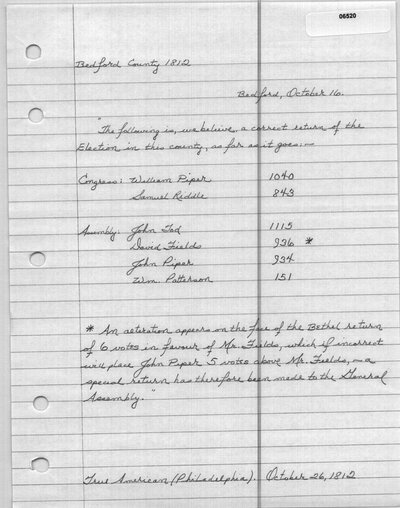 06520
Bedford County 1812
Bedford, October 16.
"The following is, we believe, a correct return of the
Election in this county, as far as it goes:—
Congress: William Piper 1040
Samuel Riddle 843
Assembly: John Tod 1115
David Fields 936 *
John Piper 934
Wm. Patterson 151
* An alteration appears on the face of the Bethel return
of 6 votes in favour of Mr. Fields, which if incorrect
will place John Piper 5 votes above Mr. Fields,—a
special return has therefore been made to the General
Assembly."
True American (Philadelphia). October 26, 1812